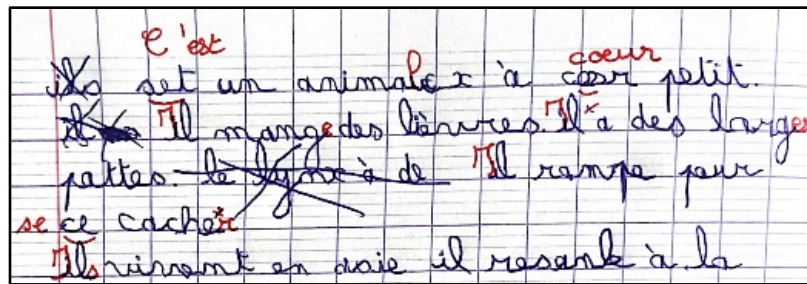 C'est coeur
ils set un animale x à cosr petit.
Il mange des lièvres. Il a des larges
pattes. le lynx à de Il rampe pour
se ce cacher
Ils vivent en voie il resank à la